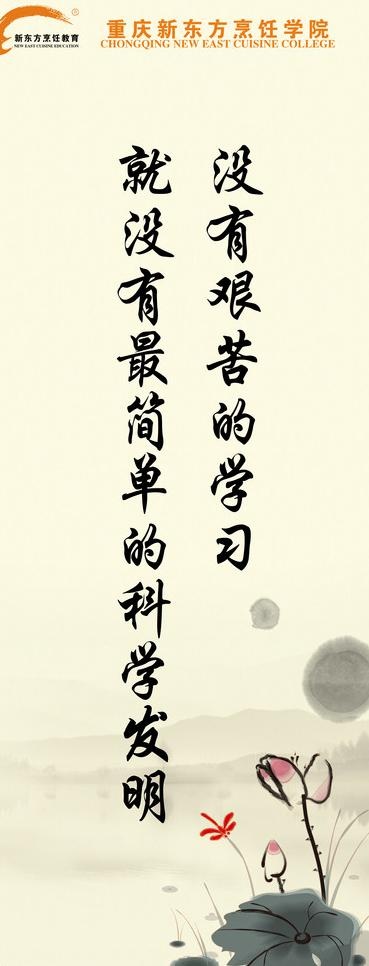 新东方烹饪教育
NEW EAST CUISINE EDUCATION
重庆新东方烹饪学院
CHONGQING NEW EAST CUISINE COLLEGE
没有艰苦的学习
就没有最简单的科学发明